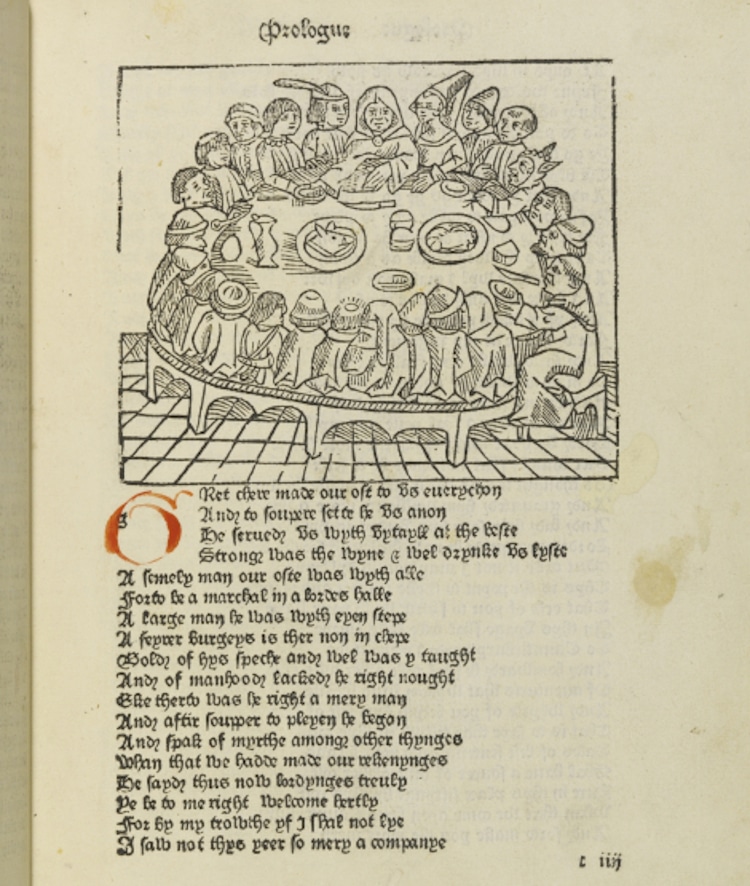 Prologue
GRet chere made our ost to vs euerychon
And to soupere sette he vs anon
He serued vs wyth vytayll at the beste
Strong was the wyne & wel drynke vs lyste
A semely man our oste was wyth alle
Forto be a marchal in a lordes halle
A large man he was wyth eyen stepe
A feyrer burgeys is ther non in chepe
Bold of hys speche and wel was y taught
And of manhood lacked he right nought
Eke therto was he right a mery man
And aftir soupper to pleyen he began
And spak of myrthe among other thynges
Whan that we hadde made our rekenynges
He sayd thus now lordynges treuly
Ye be to me right welcome hertly
For by my trowthe yf I shal not lye
I saw not thys yeer so mery a companye
c iiij